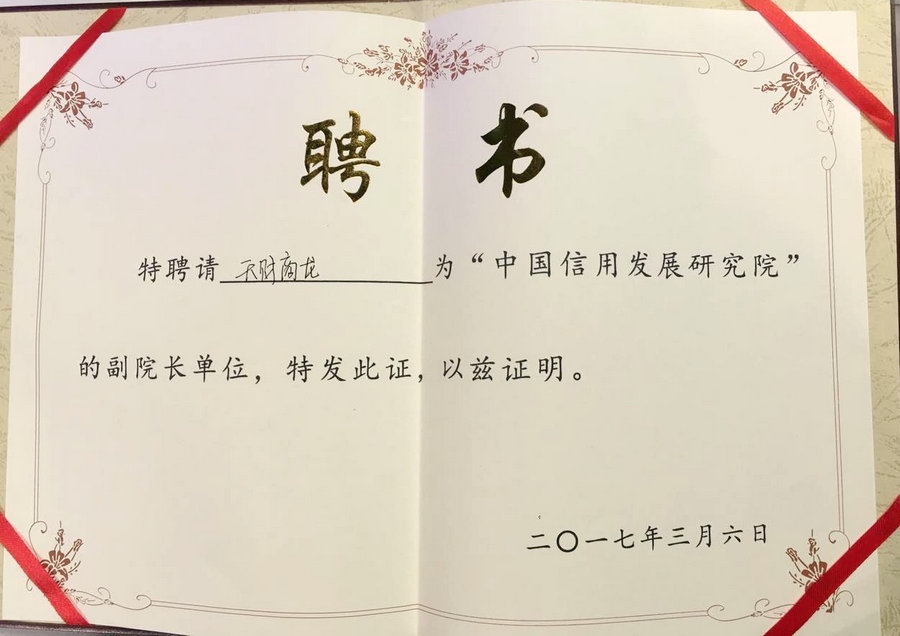 聘书
特聘请天财商龙为“中国信用发展研究院”
的副院长单位，特发此证，以兹证明。
二〇一七年三月六日